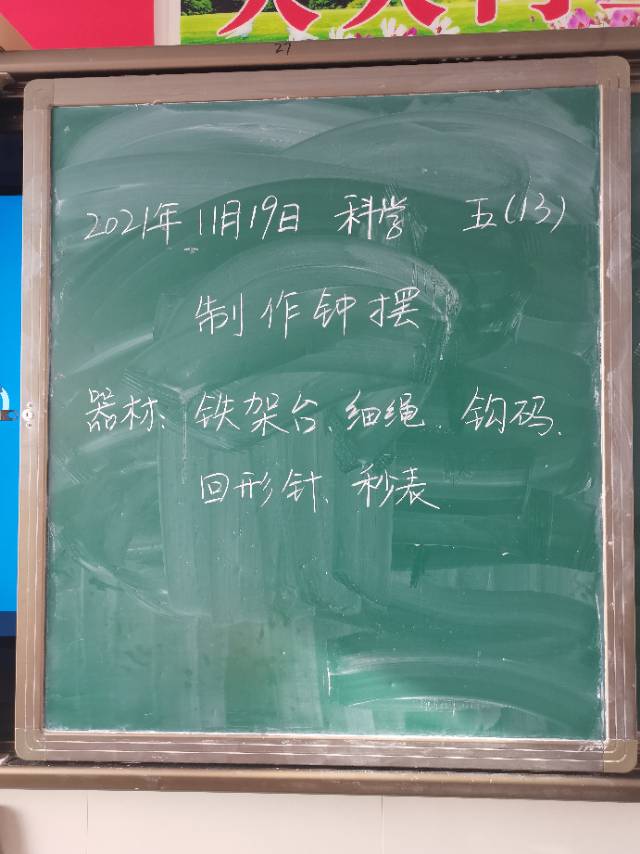 27
2021年11月19日 科学 五(13)
制作钟摆
器材:铁架台、细绳、钩码、
回形针、秒表